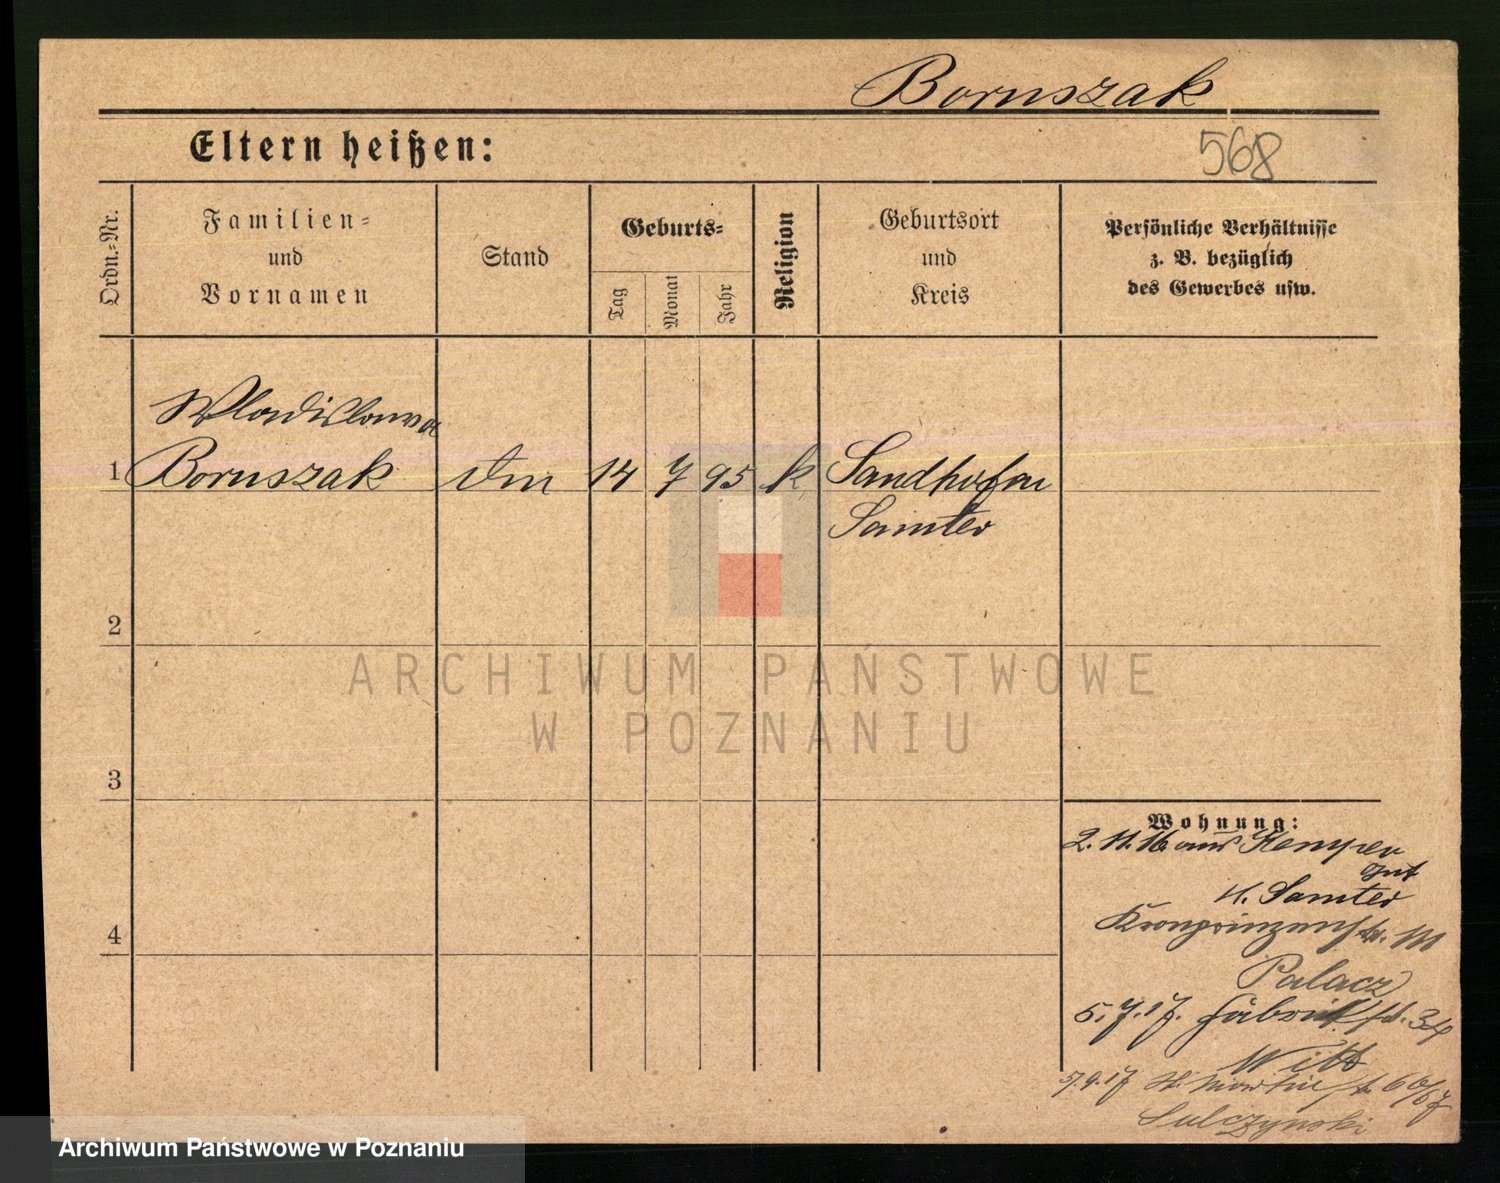 Boruszak
Eltern heißen:
568
Ordn.=Nr.
Familien=
und
Vornamen
Stand
Geburts=
Tag
Monat
Jahr
Religion
Geburtsort
und
Kreis
Persönliche Verhältnisse
z. B. bezüglich
des Gewerbes usw.
Wladislawa
1 Boruszak 14 7 95 k Sandhofen
Samter
2
3
4
Wohnung:
2. 11. 16 aus Kemper
gut
K. Samter
Kronprinzenstr.
Palacz
5. 7. 17. Fabrikstr.
Witt
5. 9. 17 St. Martinstr. 66/67
Sulczynski
ARCHIWUM PAŃSTWOWE
W POZNANIU
Archiwum Państwowe w Poznaniu